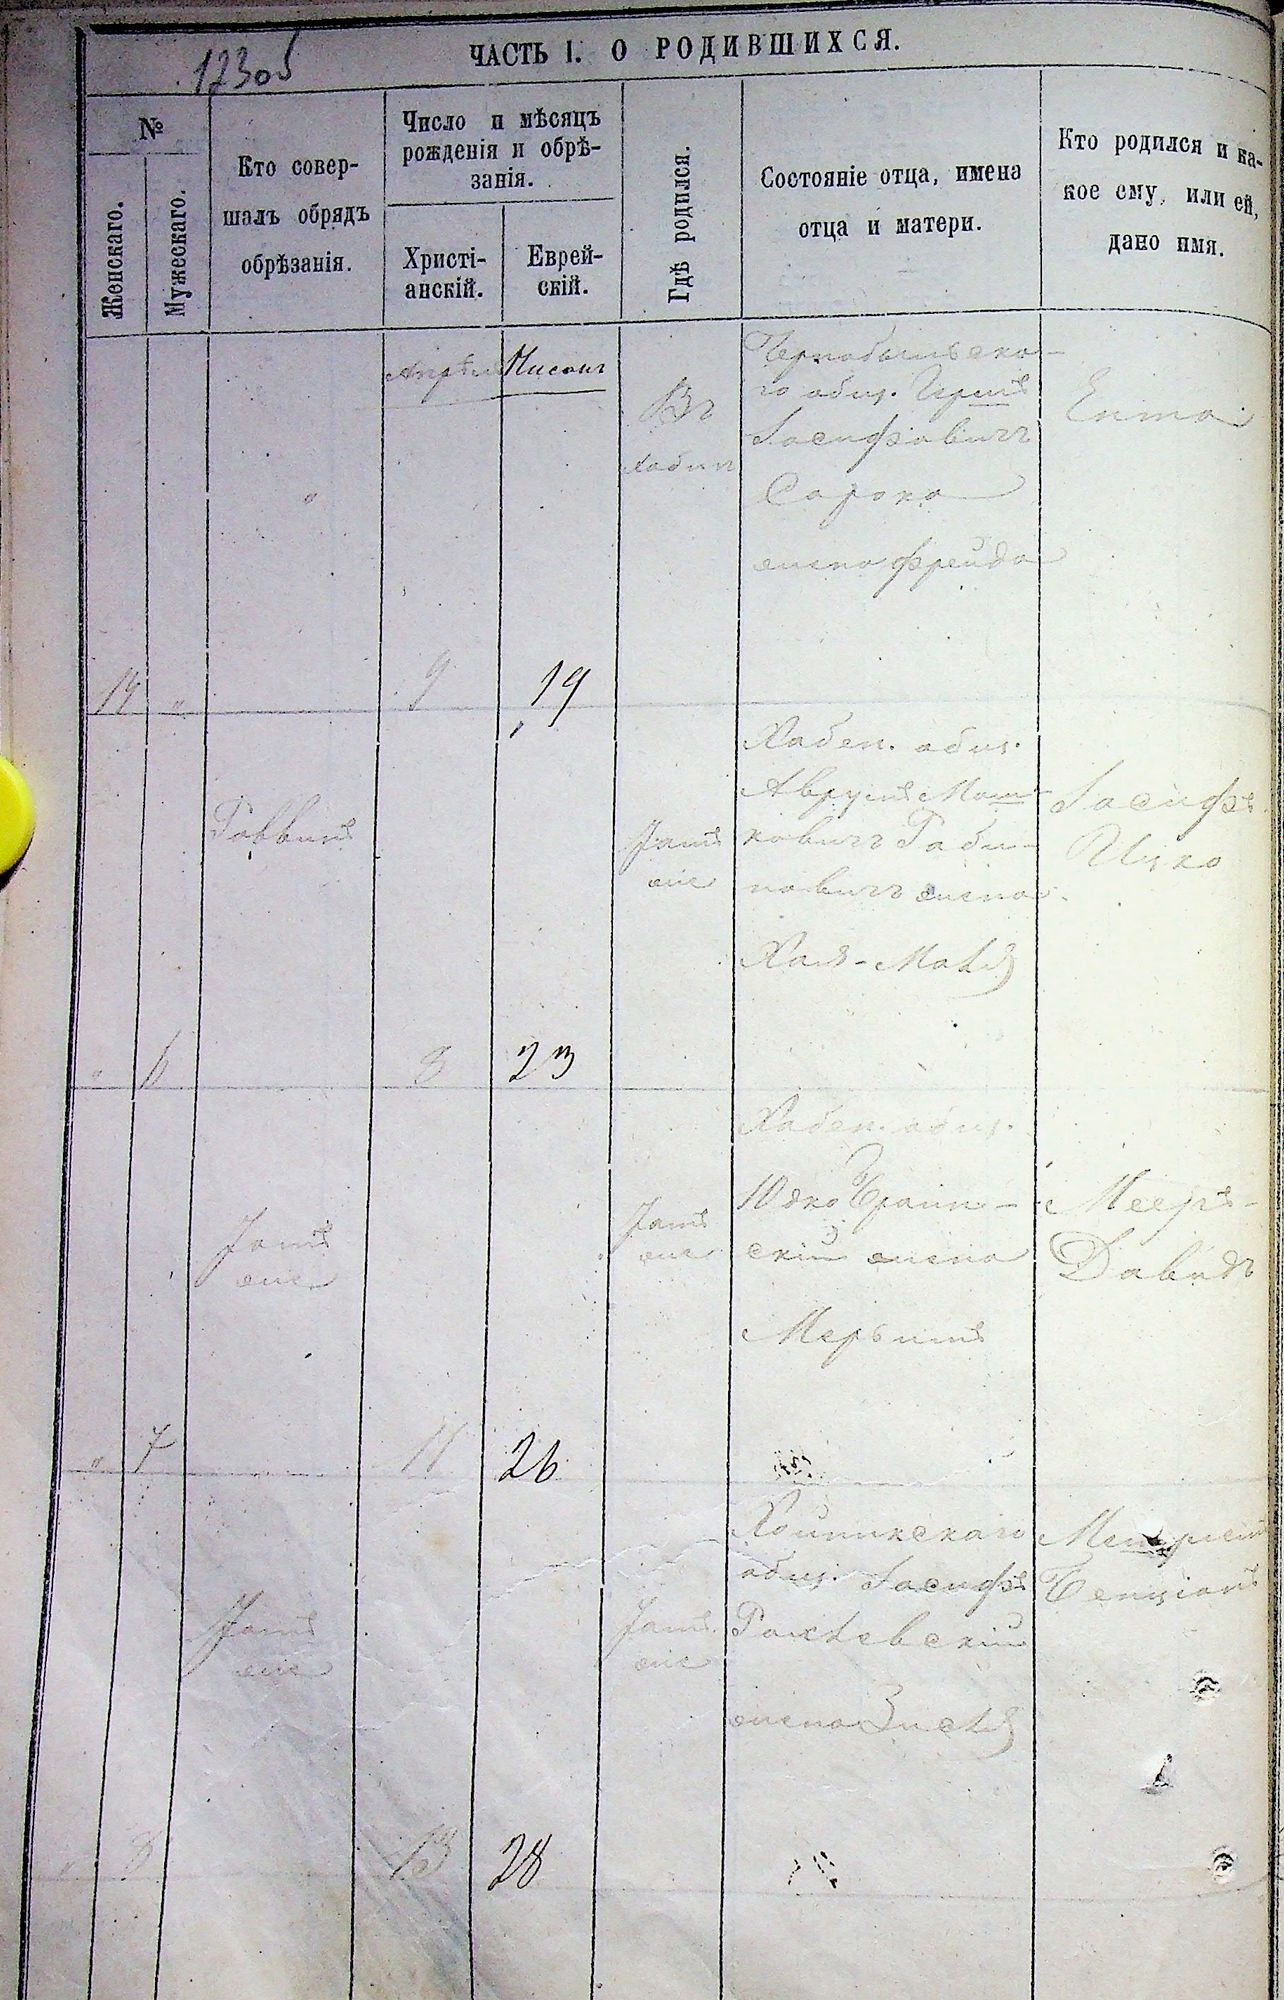 1230б
ЧАСТЬ I. О РОДИВШИХСЯ.
№
Женскаго.
Мужескаго.
Кто совер-
шалъ обрядъ
обрѣзанія.
Число и мѣсяцъ
рожденія и обрѣ-
занія.
Христі-
анскій.
Еврей-
скій.
Гдѣ родился.
Состояніе отца, имена
отца и матери.
Кто родился и ка-
кое ему, или ей,
дано имя.
Апрѣль
Нисонъ
Чернобыльска-
го общ. Гершъ
Іосифовичъ
Сорока
жена Фрейда
Въ
Хабнѣ
Ента
"
14
"
9
19
Раввинъ
Тамъ
же
Хабен. общ.
Аврумъ Мош-
ковичъ Раби-
новичъ жена
Хая-Маля
Іосифъ
Ицко
"
6
8
23
Тамъ
же
Тамъ
же
Хабен. общ.
Юдко
скій жена
Мерьимъ
Мееръ-
Давидъ
"
7
11
26
Тамъ
же
Тамъ
же
Хойникскаго
общ. Іосифъ
жена Зисля
Бенціонъ
"
8
13
28